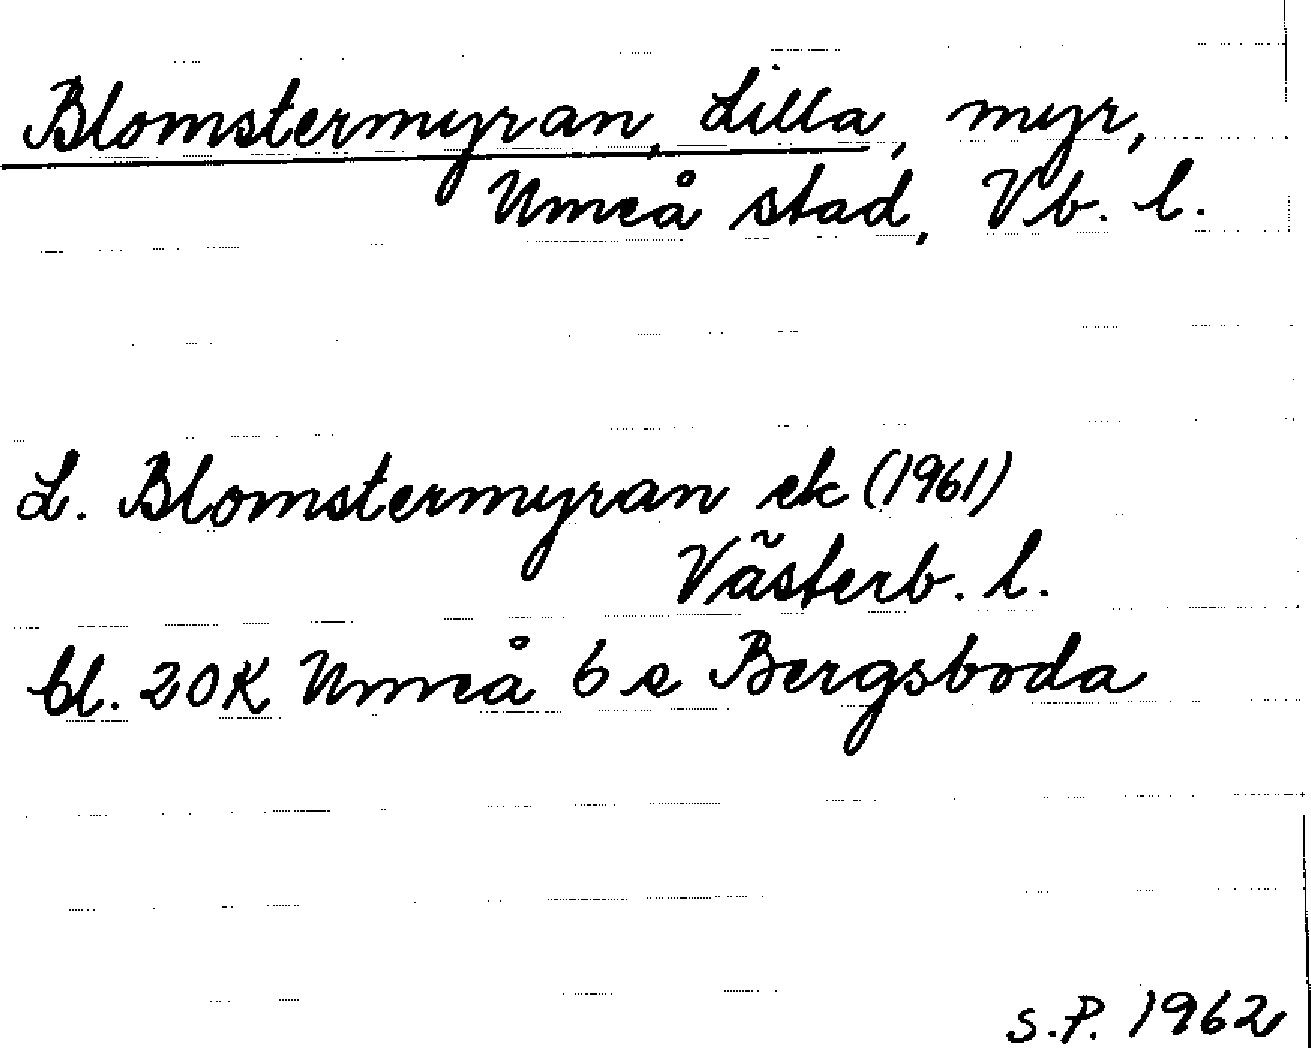 Blomstermyran, Lilla, myr,
Umeå stad, Vb. l.
L. Blomstermyran ek (1961)
Västerb. l.
bl. 20K Umeå 6 e Bergsboda
S.P. 1962